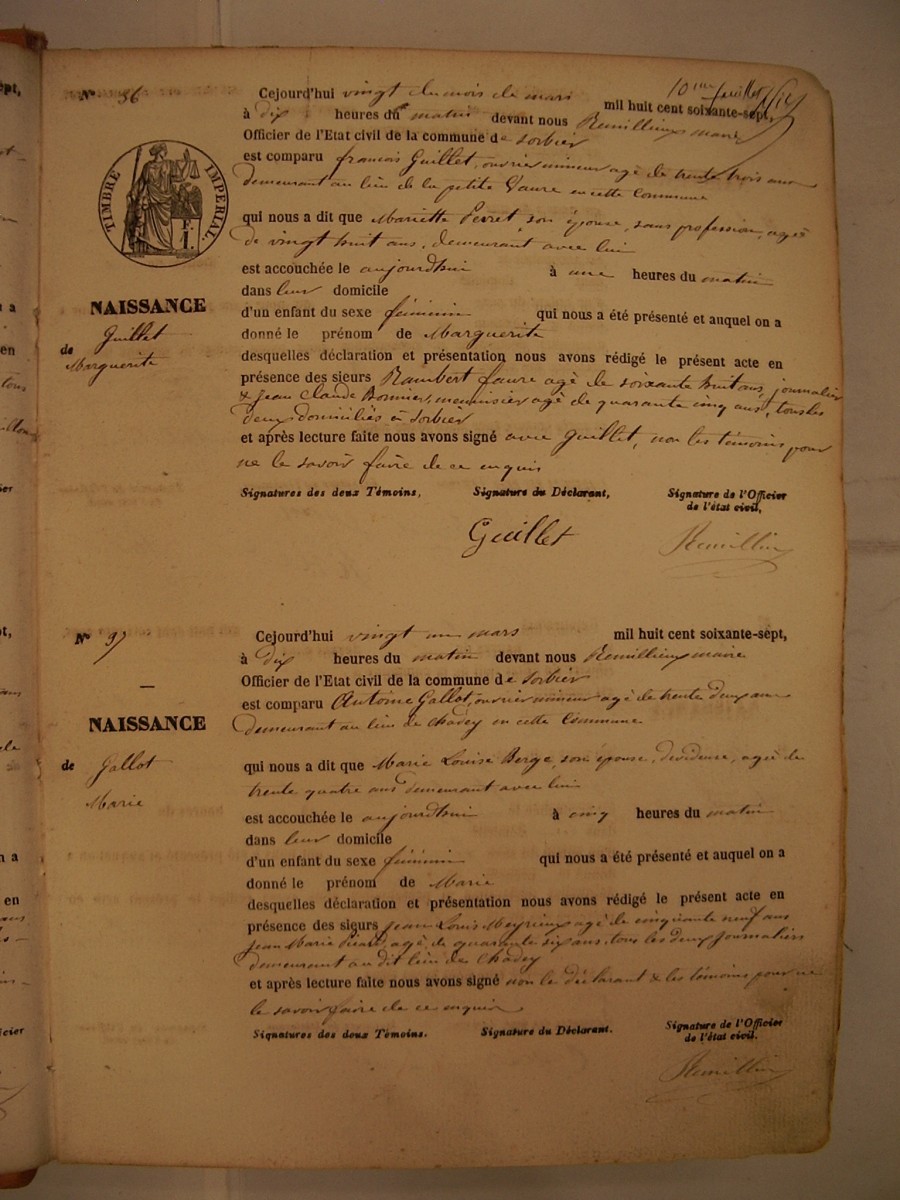 10me feuillet
N° 36
Cejourd'hui vingt du mois de mars mil huit cent soixante-sept,
à dix heures du matin devant nous Remillieux maire
Officier de l'Etat civil de la commune de Sorbier
est comparu françois Guillet, ouvrier mineur agé de trente trois ans
demeurant au lieu de la petite Vaure en cette Commune
TIMBRE IMPERIAL.
qui nous a dit que Mariette Perret son épouse, sans profession, agée
de vingt huit ans, demeurant avec lui
est accouchée le aujourdhui à une heures du matin
dans leur domicile
NAISSANCE
d'un enfant du sexe féminin qui nous a été présenté et auquel on a
de Guillet
Marguerite
donné le prénom de Marguerite
desquelles déclaration et présentation nous avons rédigé le présent acte en
présence des sieurs Rambert faure agé de soixante huit ans, journalier
& Jean Claude Bonnier, menuisier agé de quarante cinq ans, tous les
deux domiciliés à Sorbier
et après lecture faite nous avons signé avec Guillet, non les témoins pour
ne le savoir faire de ce enquis
Signatures des deux Témoins, Signature du Déclarant, Signature de l'Officier
de l'état civil,
Guillet Remillieux
N° 37
Cejourd'hui vingt un mars mil huit cent soixante-sept,
à dix heures du matin devant nous Remillieux maire
Officier de l'Etat civil de la commune de Sorbier
est comparu Antoine Gallot, ouvrier mineur agé de trente deux ans
demeurant au lieu de chadey en cette Commune
NAISSANCE
de Gallot
Marie
qui nous a dit que Marie Louise Berge, son épouse, devideuse, agée de
trente quatre ans demeurant avec lui
est accouchée le aujourdhui à cinq heures du matin
dans leur domicile
d'un enfant du sexe féminin qui nous a été présenté et auquel on a
donné le prénom de Marie
desquelles déclaration et présentation nous avons rédigé le présent acte en
présence des sieurs Jean Louis Meyrieux agé de cinquante neuf ans
Jean Marie agé de quarante six ans, tous les deux journaliers
demeurant au dit lieu de Chadey
et après lecture faite nous avons signé non le déclarant & les témoins pour ne
le savoir faire de ce enquis
Signatures des deux Témoins. Signature du Déclarant. Signature de l'Officier
de l'état civil.
Remillieux